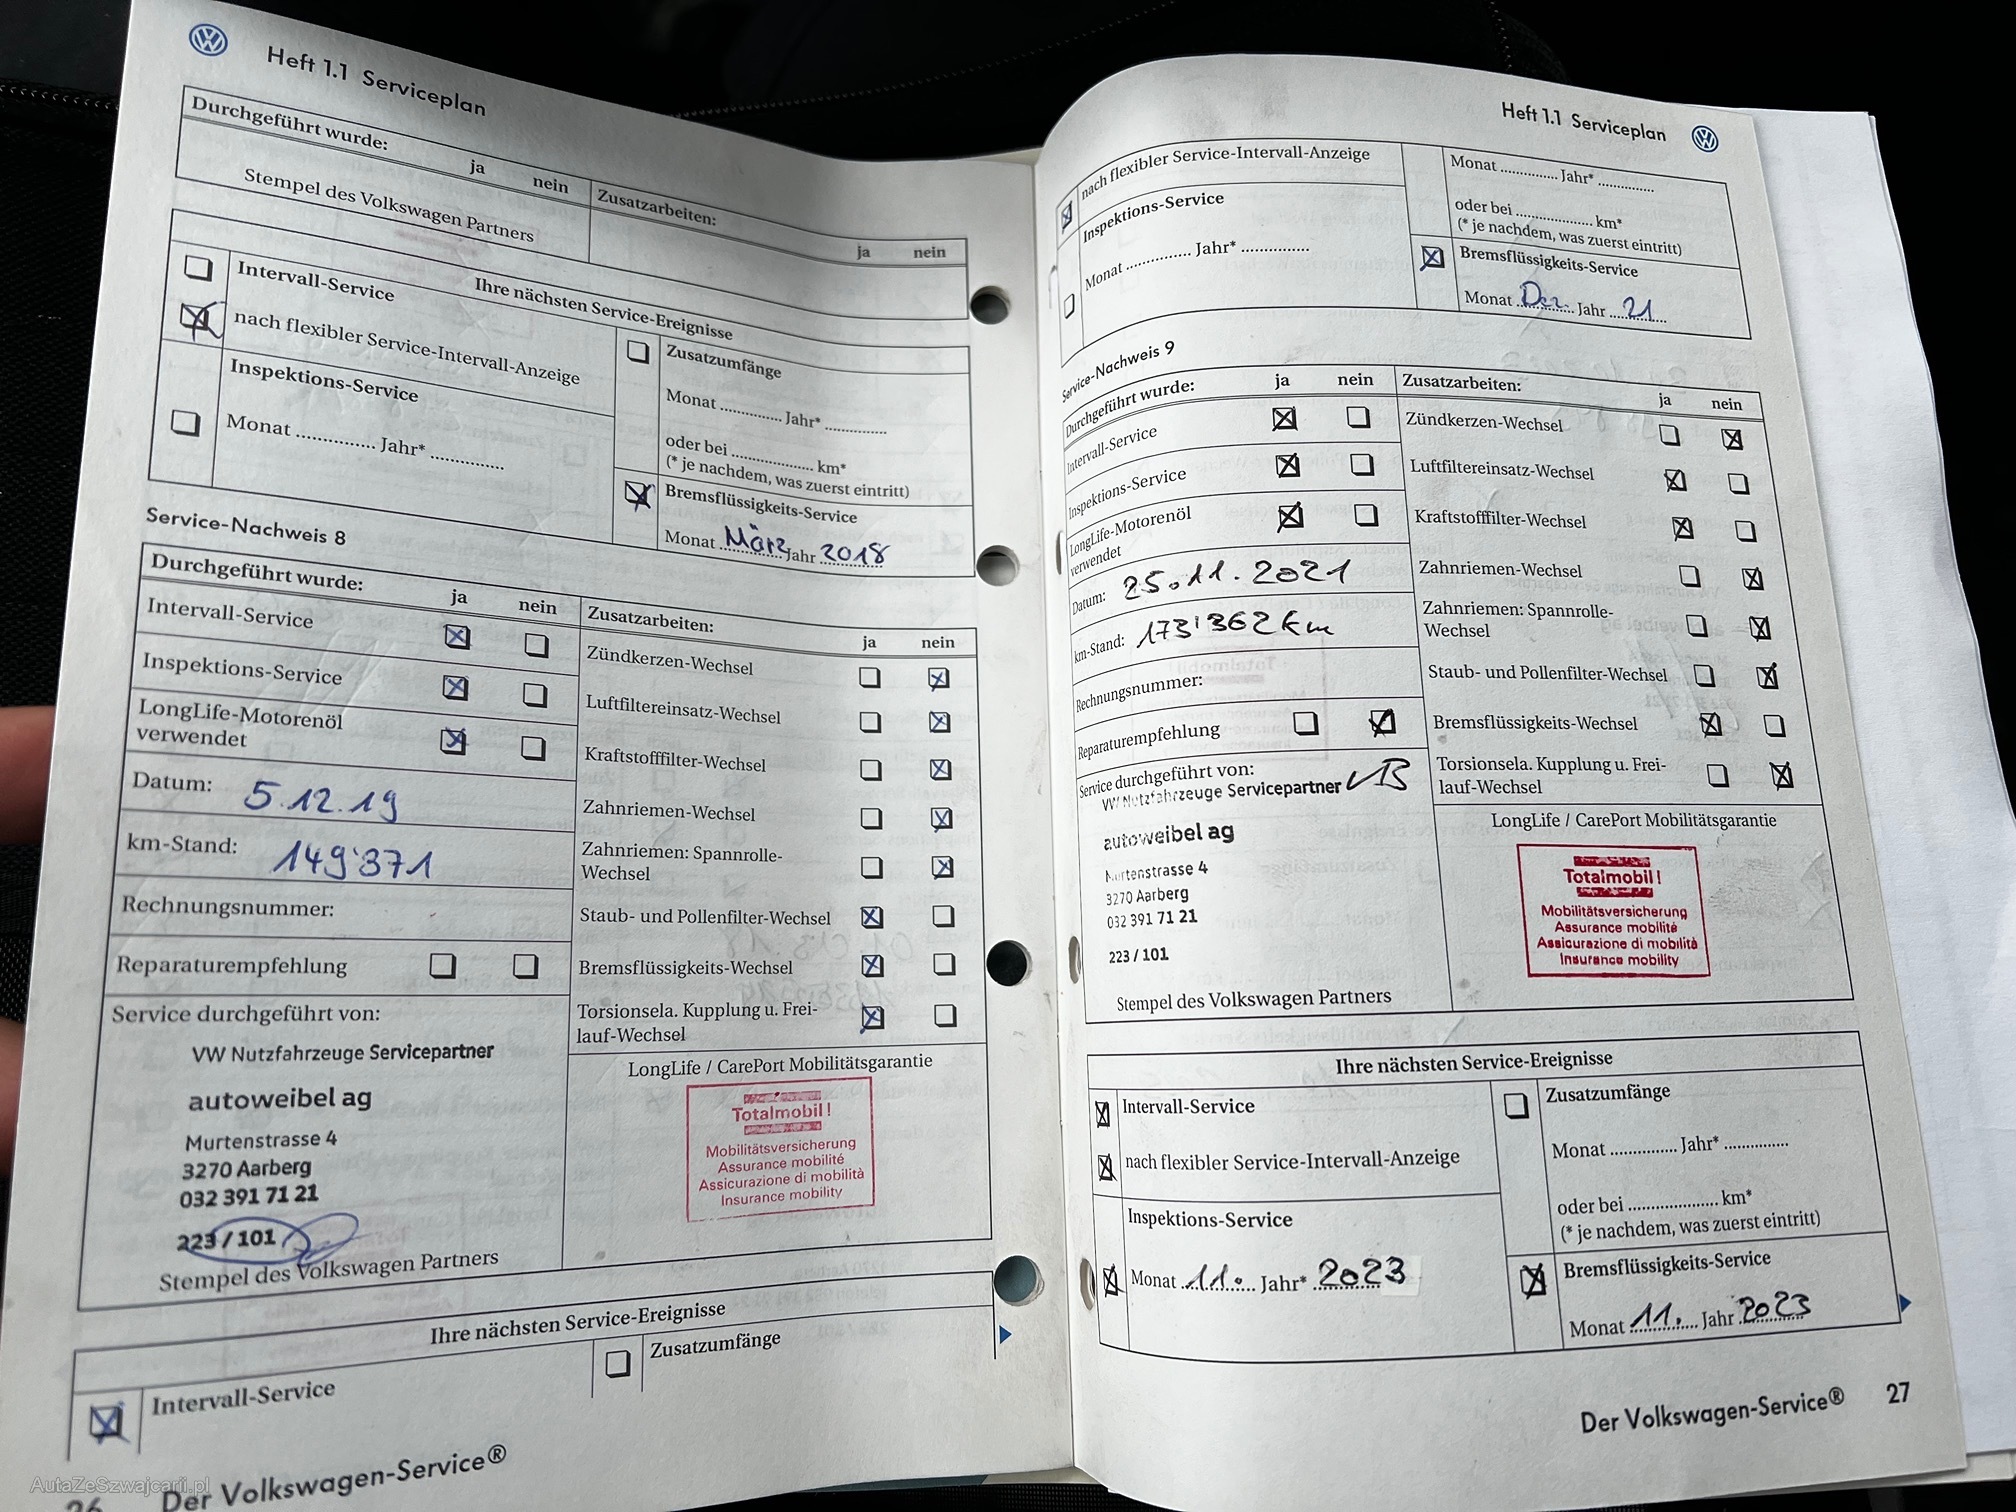 Heft 1.1 Serviceplan
Durchgeführt wurde:
ja nein
Zusatzarbeiten:
ja nein
Stempel des Volkswagen Partners
Ihre nächsten Service-Ereignisse
Intervall-Service
nach flexibler Service-Intervall-Anzeige
Inspektions-Service
Monat .............. Jahr* .............
Zusatzumfänge
Monat .............. Jahr* .............
oder bei .................. km*
(* je nachdem, was zuerst eintritt)
Bremsflüssigkeits-Service
Monat März Jahr 2018
Service-Nachweis 8
Durchgeführt wurde:
ja nein
Intervall-Service
Inspektions-Service
LongLife-Motorenöl
verwendet
Datum: 5.12.19
km-Stand: 149'371
Rechnungsnummer:
Reparaturempfehlung
Service durchgeführt von:
VW Nutzfahrzeuge Servicepartner
autoweibel ag
Murtenstrasse 4
3270 Aarberg
032 391 71 21
223 / 101
Stempel des Volkswagen Partners
Zusatzarbeiten:
ja nein
Zündkerzen-Wechsel
Luftfiltereinsatz-Wechsel
Kraftstofffilter-Wechsel
Zahnriemen-Wechsel
Zahnriemen: Spannrolle-
Wechsel
Staub- und Pollenfilter-Wechsel
Bremsflüssigkeits-Wechsel
Torsionsela. Kupplung u. Frei-
lauf-Wechsel
LongLife / CarePort Mobilitätsgarantie
Totalmobil!
Mobilitätsversicherung
Assurance mobilité
Assicurazione di mobilità
Insurance mobility
Ihre nächsten Service-Ereignisse
Intervall-Service
Zusatzumfänge
26 Der Volkswagen-Service®
AutaZeSzwajcarii.pl
Heft 1.1 Serviceplan
nach flexibler Service-Intervall-Anzeige
Inspektions-Service
Monat .............. Jahr* .............
Monat .............. Jahr* .............
oder bei .................. km*
(* je nachdem, was zuerst eintritt)
Bremsflüssigkeits-Service
Monat Dez. Jahr 21
Service-Nachweis 9
Durchgeführt wurde:
ja nein
Intervall-Service
Inspektions-Service
LongLife-Motorenöl
verwendet
Datum: 25.11.2021
km-Stand: 173'362 km
Rechnungsnummer:
Reparaturempfehlung
Service durchgeführt von:
VW Nutzfahrzeuge Servicepartner
autoweibel ag
Murtenstrasse 4
3270 Aarberg
032 391 71 21
223 / 101
Stempel des Volkswagen Partners
Zusatzarbeiten:
ja nein
Zündkerzen-Wechsel
Luftfiltereinsatz-Wechsel
Kraftstofffilter-Wechsel
Zahnriemen-Wechsel
Zahnriemen: Spannrolle-
Wechsel
Staub- und Pollenfilter-Wechsel
Bremsflüssigkeits-Wechsel
Torsionsela. Kupplung u. Frei-
lauf-Wechsel
LongLife / CarePort Mobilitätsgarantie
Totalmobil!
Mobilitätsversicherung
Assurance mobilité
Assicurazione di mobilità
Insurance mobility
Ihre nächsten Service-Ereignisse
Intervall-Service
nach flexibler Service-Intervall-Anzeige
Inspektions-Service
Monat 11. Jahr* 2023
Zusatzumfänge
Monat .............. Jahr* .............
oder bei .................. km*
(* je nachdem, was zuerst eintritt)
Bremsflüssigkeits-Service
Monat 11. Jahr 2023
Der Volkswagen-Service® 27